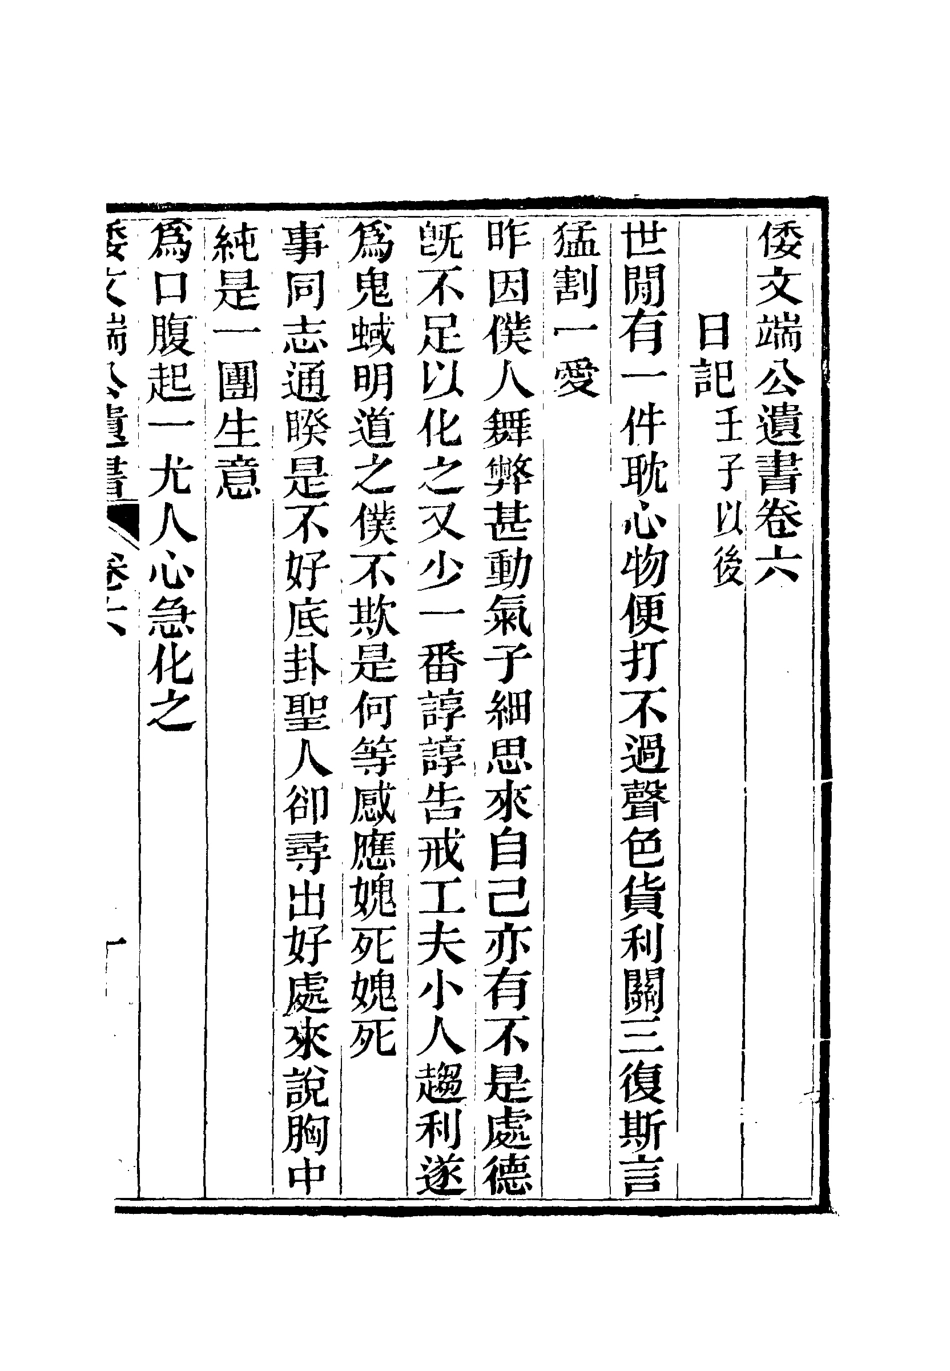 倭文端公遺書卷六
日記壬子以後
世閒有一件耽心物便打不過聲色貨利關三復斯言
猛割一愛
昨因僕人舞弊甚動氣子細思來自己亦有不是處德
旣不足以化之又少一番諄諄告戒工夫小人趨利遂
爲鬼蜮明道之僕不欺是何等感應媿死媿死
事同志通睽是不好底卦聖人卻尋出好處來說胸中
純是一團生意
爲口腹起一尤人心急化之
倭文端公遺書 卷六 一